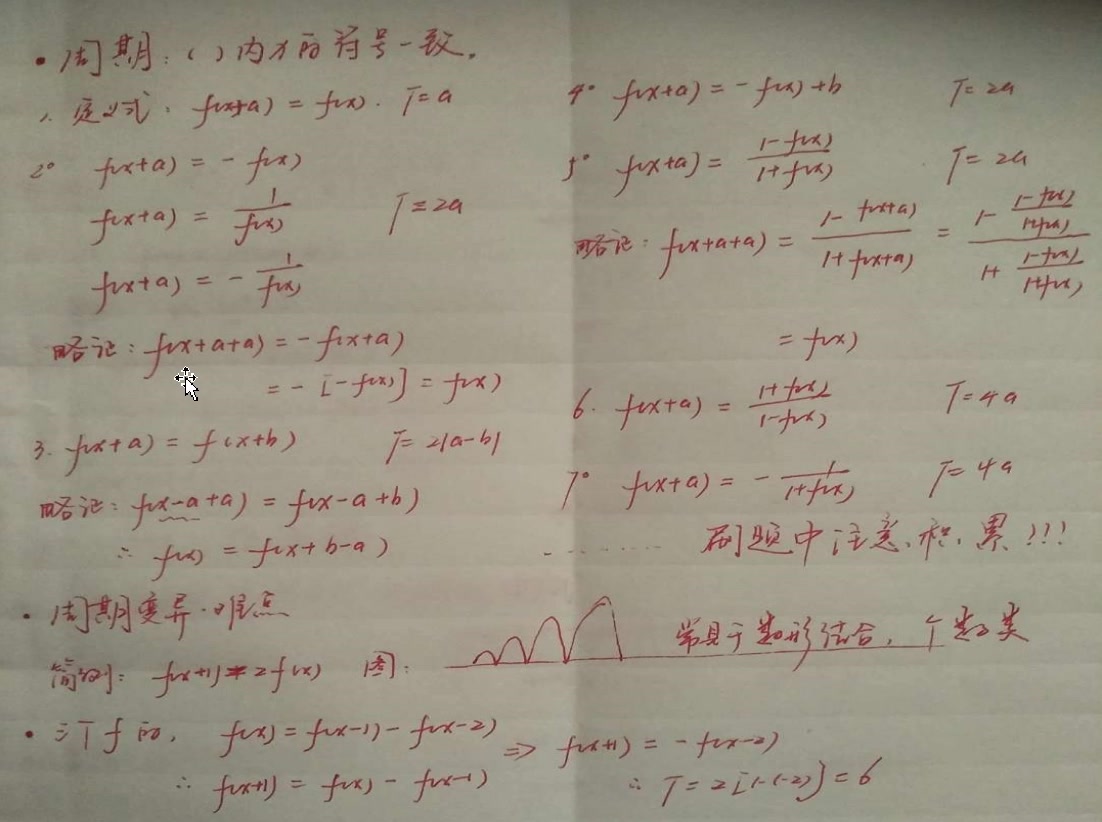 • 周期：( )内x的符号一致。
1. 定义式：f(x+a) = f(x). T=a
2° f(x+a) = - f(x)
f(x+a) = 1/f(x) T=2a
f(x+a) = - 1/f(x)
略记：f(x+a+a) = - f(x+a)
= - [-f(x)] = f(x)
3. f(x+a) = f(x+b) T=2|a-b|
略记：f(x-a+a) = f(x-a+b)
∴ f(x) = f(x+b-a)
4° f(x+a) = - f(x) + b T=2a
5° f(x+a) = (1-f(x))/(1+f(x)) T=2a
略记：f(x+a+a) = (1-f(x+a))/(1+f(x+a)) = (1-(1-f(x))/(1+f(x)))/(1+(1-f(x))/(1+f(x)))
= f(x)
6. f(x+a) = (1+f(x))/(1-f(x)) T=4a
7° f(x+a) = - 1/(1+f(x)) T=4a
......... 刷题中注意、积、累!!!
• 周期变异·难点
简例：f(x+1) = 2f(x) 图： 常见于数形结合，个数类
• 三个f的， f(x) = f(x-1) - f(x-2) ⇒ f(x+1) = - f(x-2)
∴ f(x+1) = f(x) - f(x-1) ∴ T=2[1-(-2)]=6